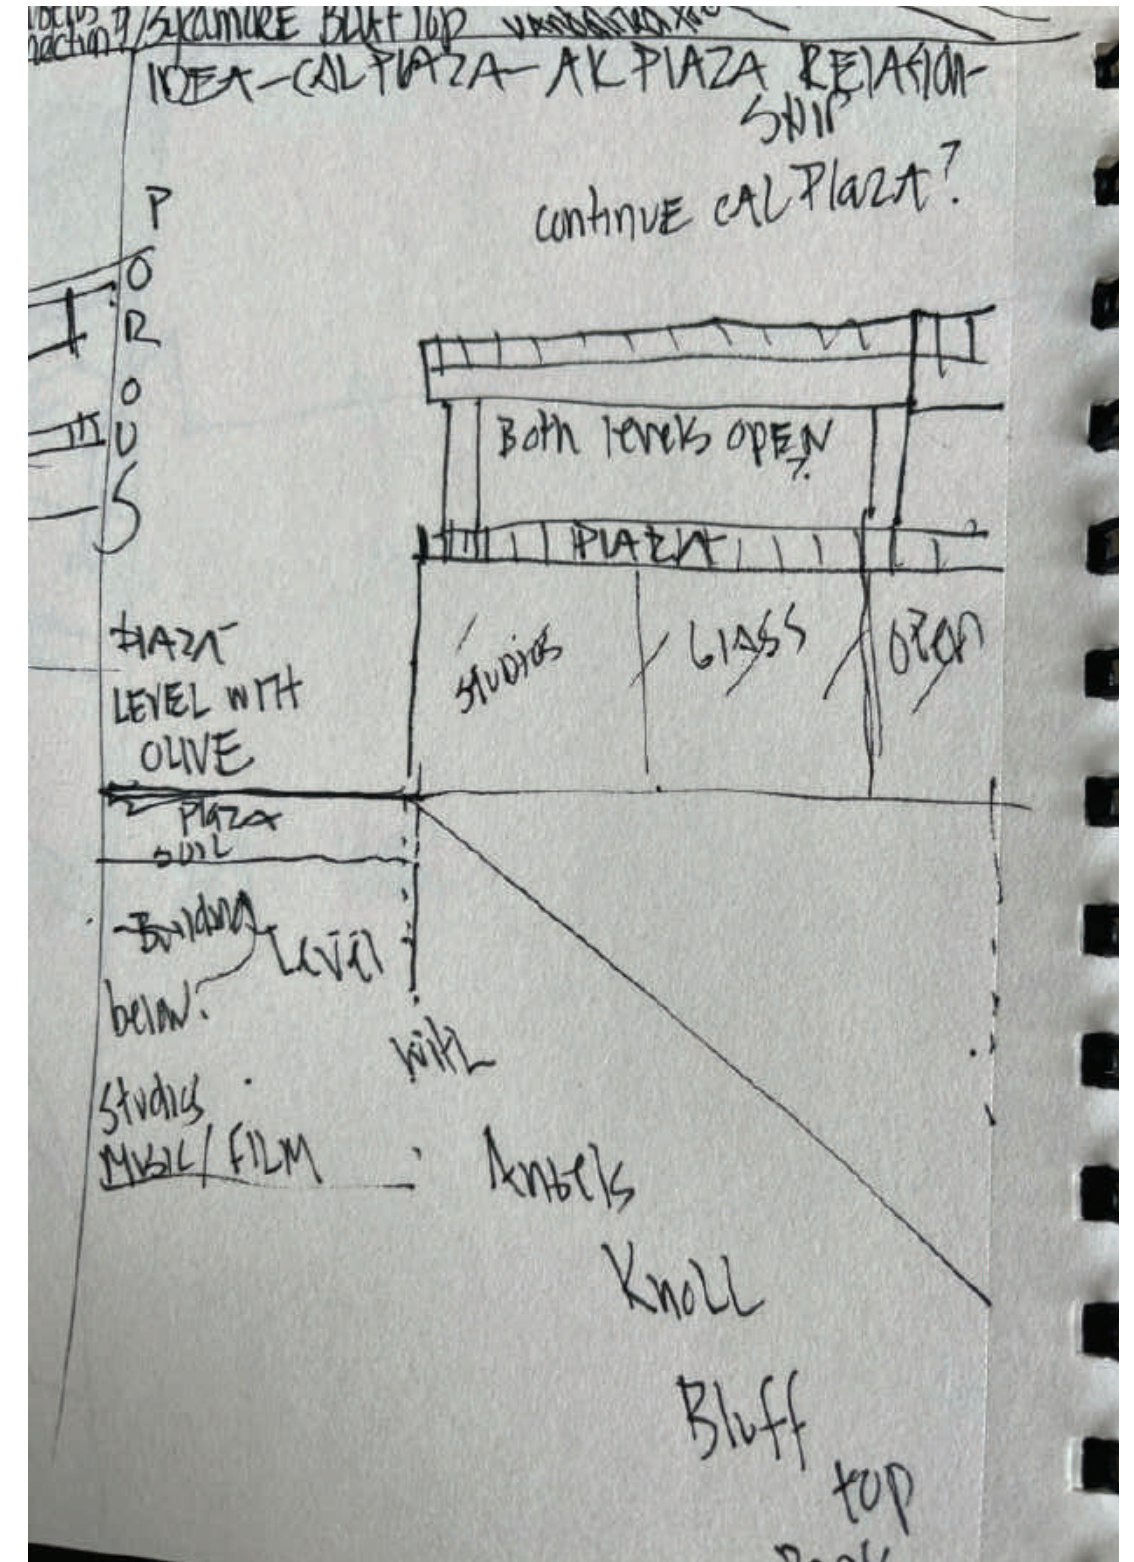 /Sycamore Bluff Top
IDEA - CAL PLAZA - AK PLAZA RELATION-
SHIP
continuE CAL Plaza?
P
O
R
O
U
S
Both levels opEN
?
PLAZA
studios
GLASS
OPEN
PLAZA
LEVEL WITH
OLIVE
Plaza
SOIL
Building
Level
below?
With
Studios
MUSIC/FILM
Angels
Knoll
Bluff
top